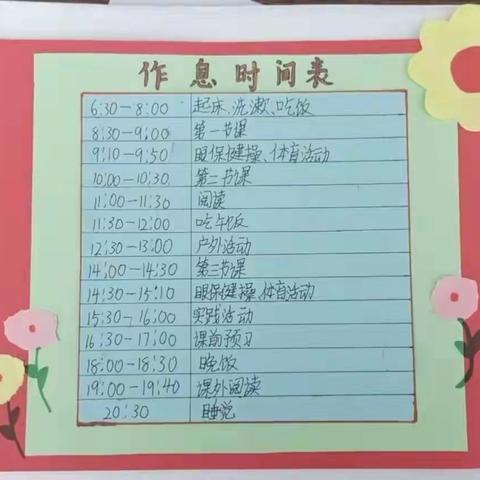 作息时间表
6:30—8:00 起床、洗漱、吃饭
8:30—9:00 第一节课
9:10—9:50 眼保健操、体育活动
10:00—10:30 第二节课
11:00—11:30 阅读
11:30—12:00 吃午饭
12:30—13:00 户外活动
14:00—14:30 第三节课
14:30—15:10 眼保健操、体育活动
15:30—16:00 实践活动
16:30—17:00 课前预习
18:00—18:30 晚饭
19:00—19:40 课外阅读
20:30 睡觉